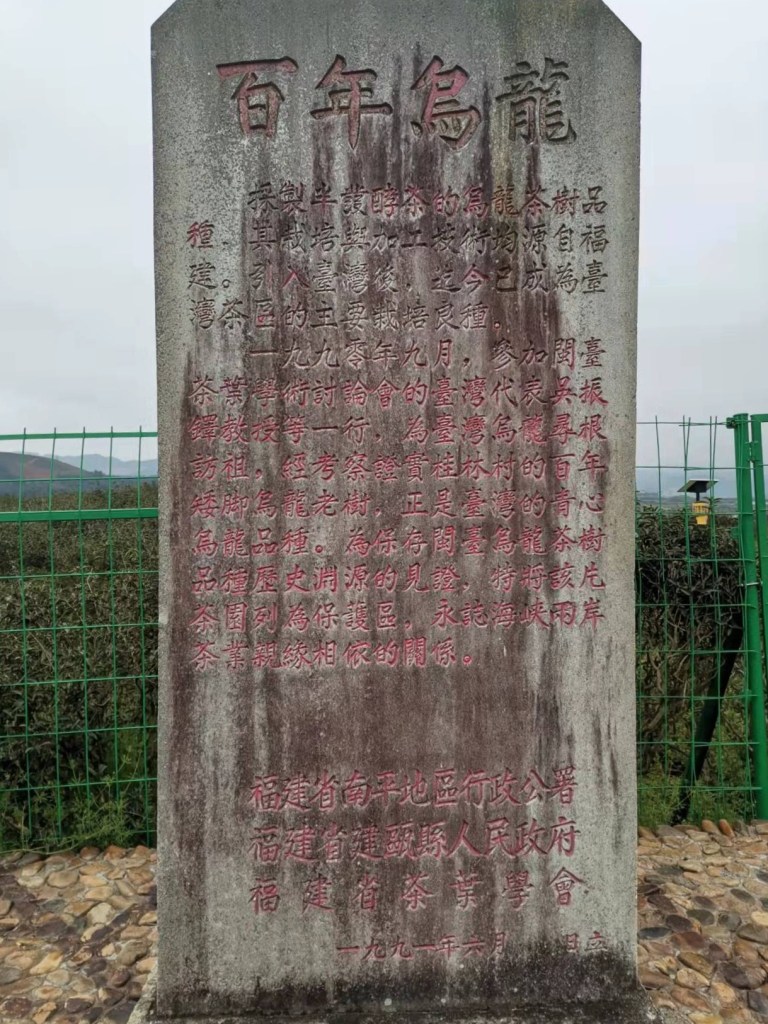 百年烏龍
採製半讀酵茶的烏龍茶樹品
種，其栽培與加工技術均源自福
建。引入臺灣後，迄今已成為臺
灣茶區的主要栽培良種。
一九九零年九月，參加閩臺
茶葉學術討論會的臺灣代表吳振
鐸教授等一行，為臺灣烏龍尋根
訪祖，經考察證實桂林村的百年
矮脚烏龍老樹，正是臺灣的青心
烏龍品種。為保存閩臺烏龍茶樹
品種歷史淵源的見證，特將該片
茶園列為保護區，永誌海峽兩岸
茶業親緣相依的關係。
福建省南平地區行政公署
福建省建甌縣人民政府
福建省茶葉學會
一九九一年六月 日立